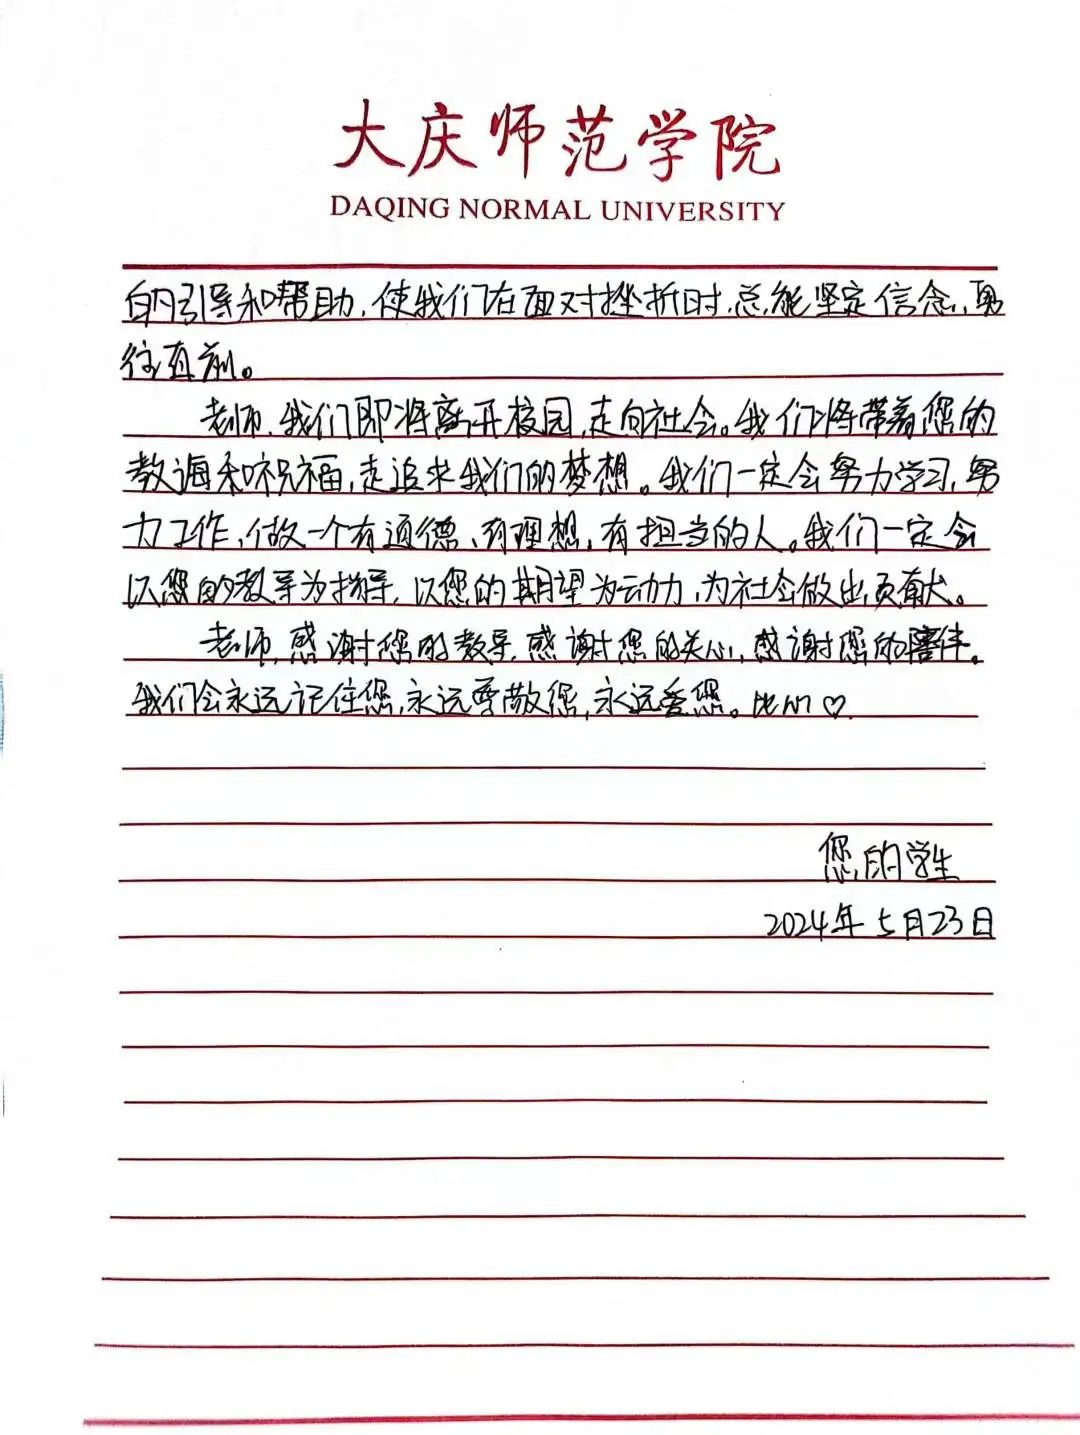 大庆师范学院
DAQING NORMAL UNIVERSITY
的引导和帮助,使我们在面对挫折时,总能坚定信念,勇
往直前。
老师,我们即将离开校园,走向社会。我们将带着您的
教诲和祝福,走追求我们的梦想。我们一定会努力学习,努
力工作,做一个有道德、有理想,有担当的人。我们一定会
以您的教导为指导,以您的期望为动力,为社会做出贡献。
老师,感谢您的教导,感谢您的关心,感谢您的陪伴。
我们会永远记住您,永远尊敬您,永远爱您。比心♡.
您的学生
2024年5月23日